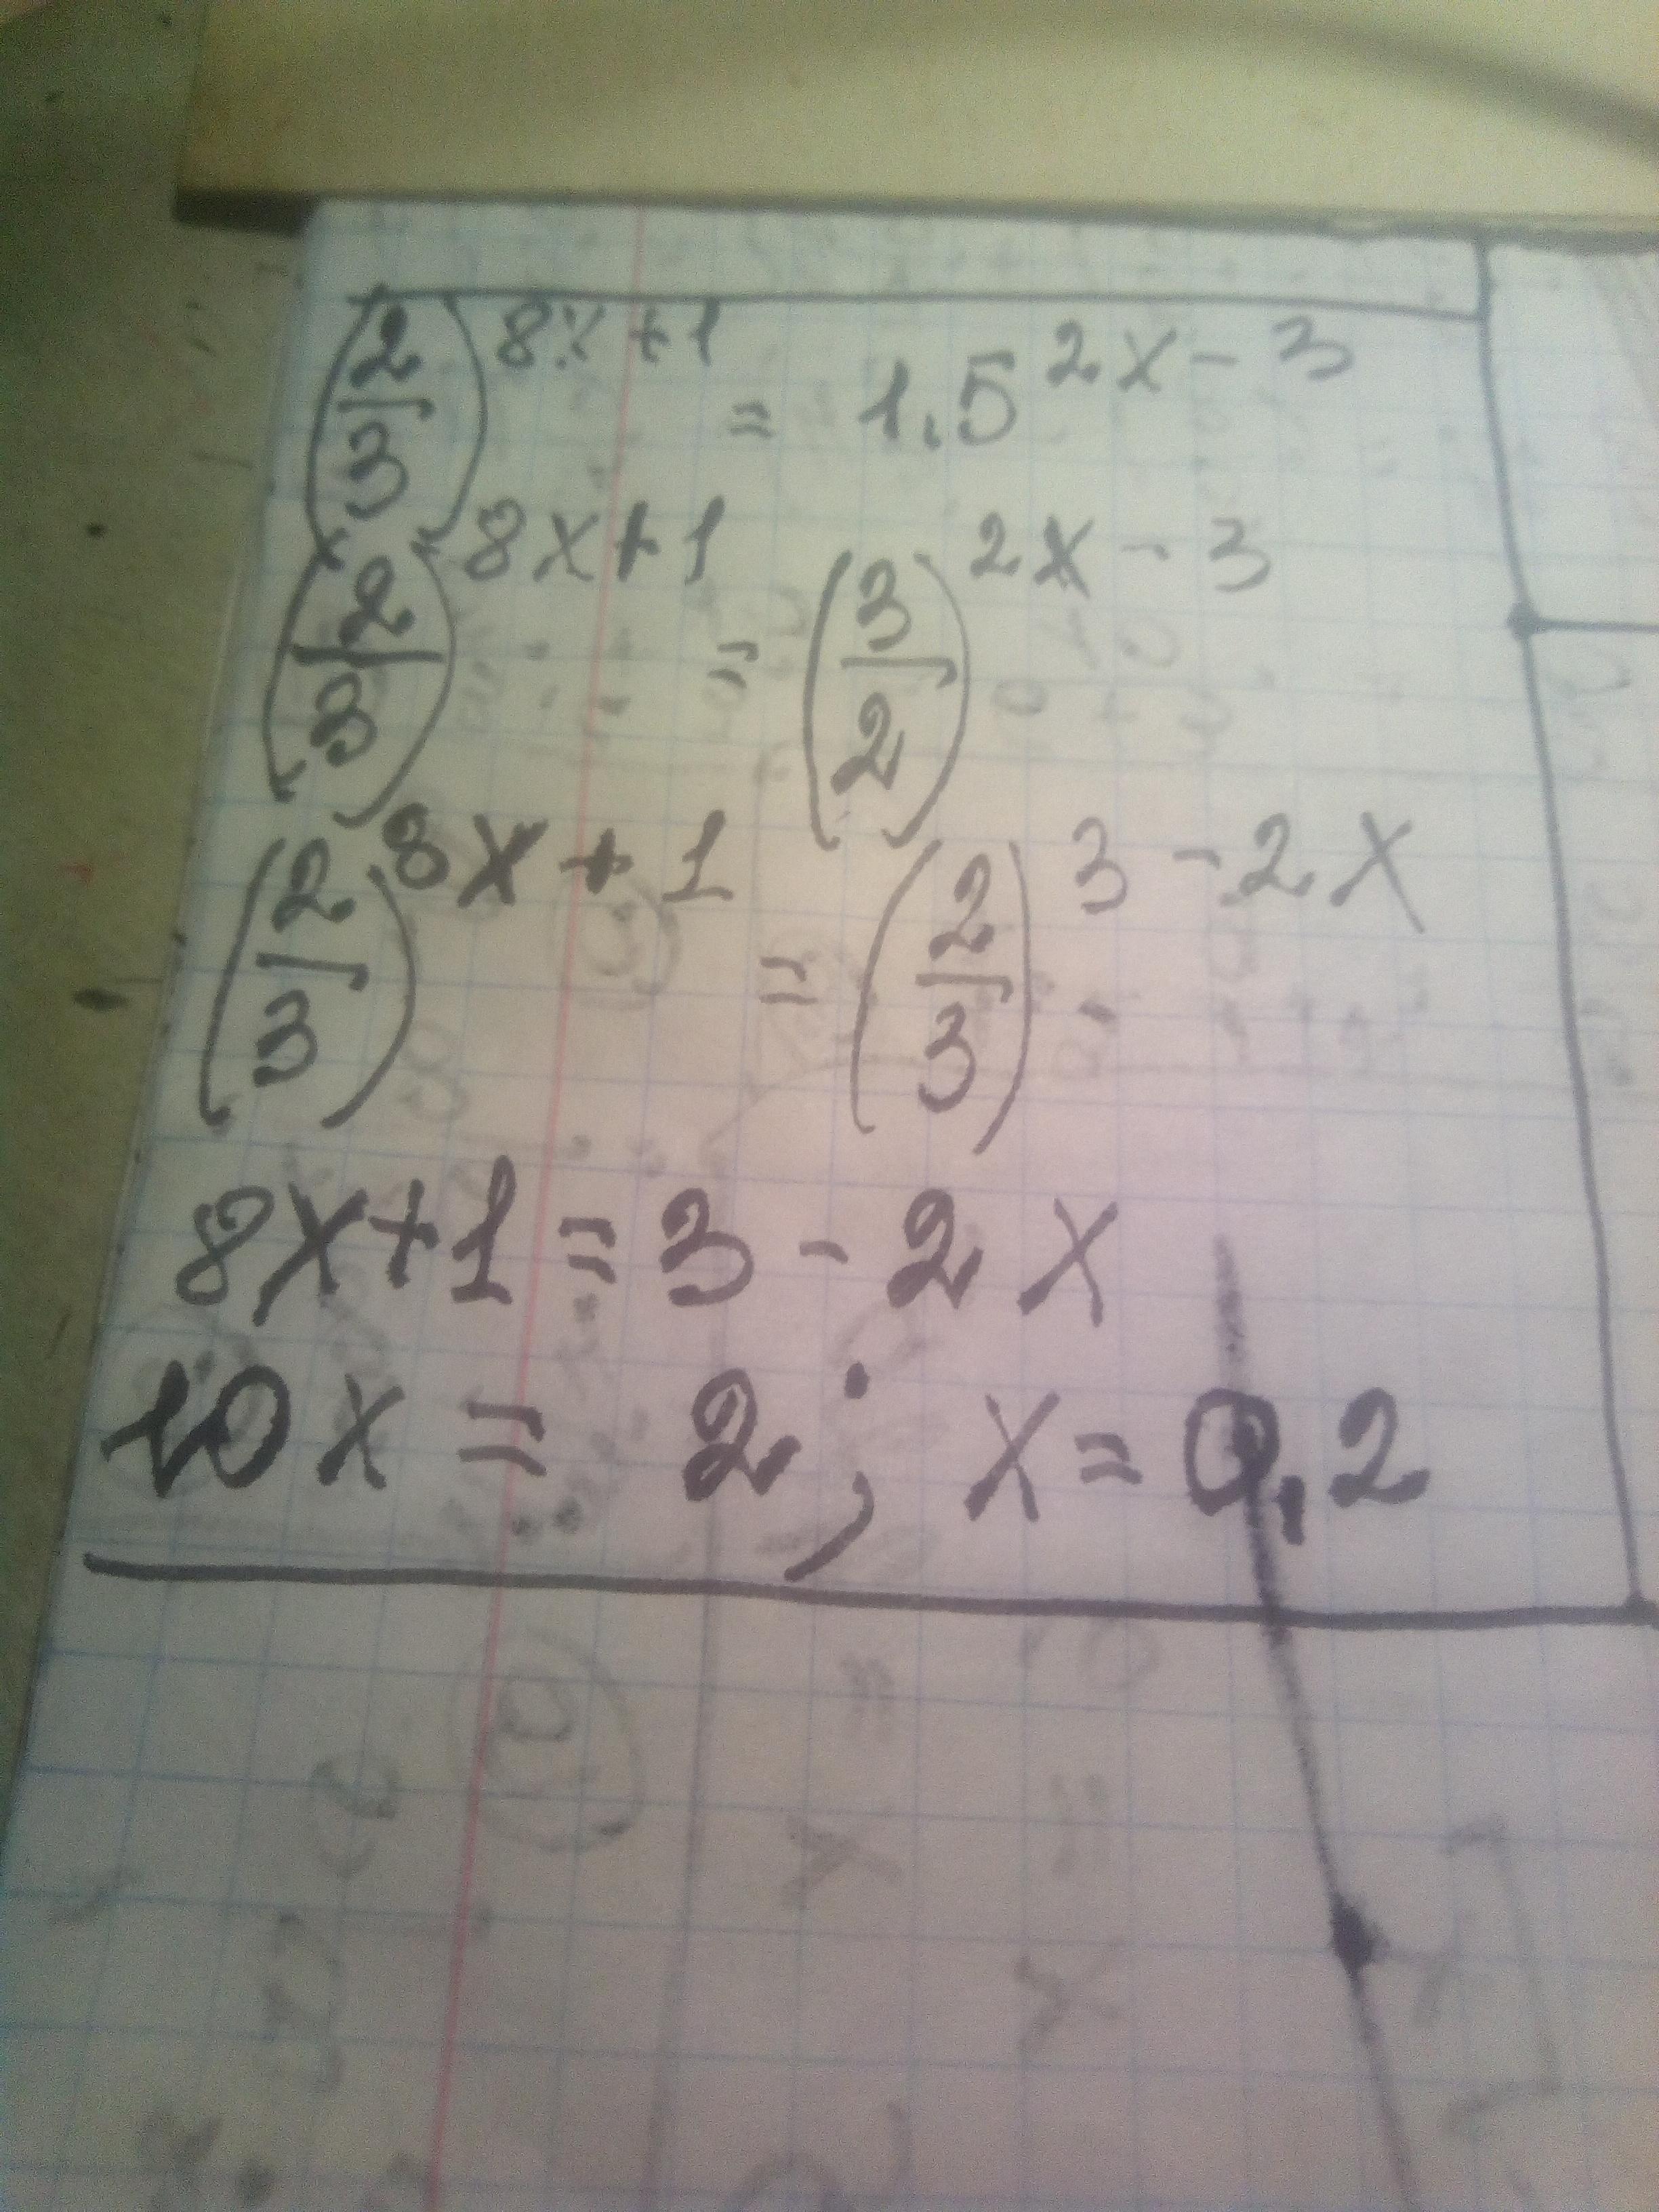 (2/3)^(8x+1) = 1,5^(2x-3)
(2/3)^(8x+1) = (3/2)^(2x-3)
(2/3)^(8x+1) = (2/3)^(3-2x)
8x+1=3-2x
10x = 2; x=0,2